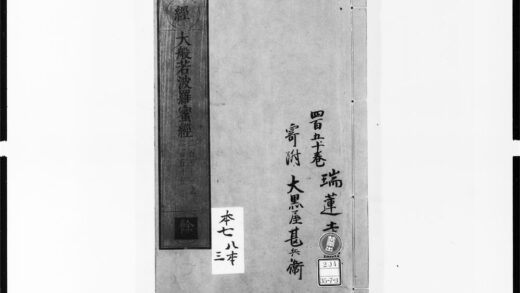 瑞蓮
四百五十巻
寄附 大黒屋甚兵衛
經 大般若波羅蜜經
本七 八本
三
234